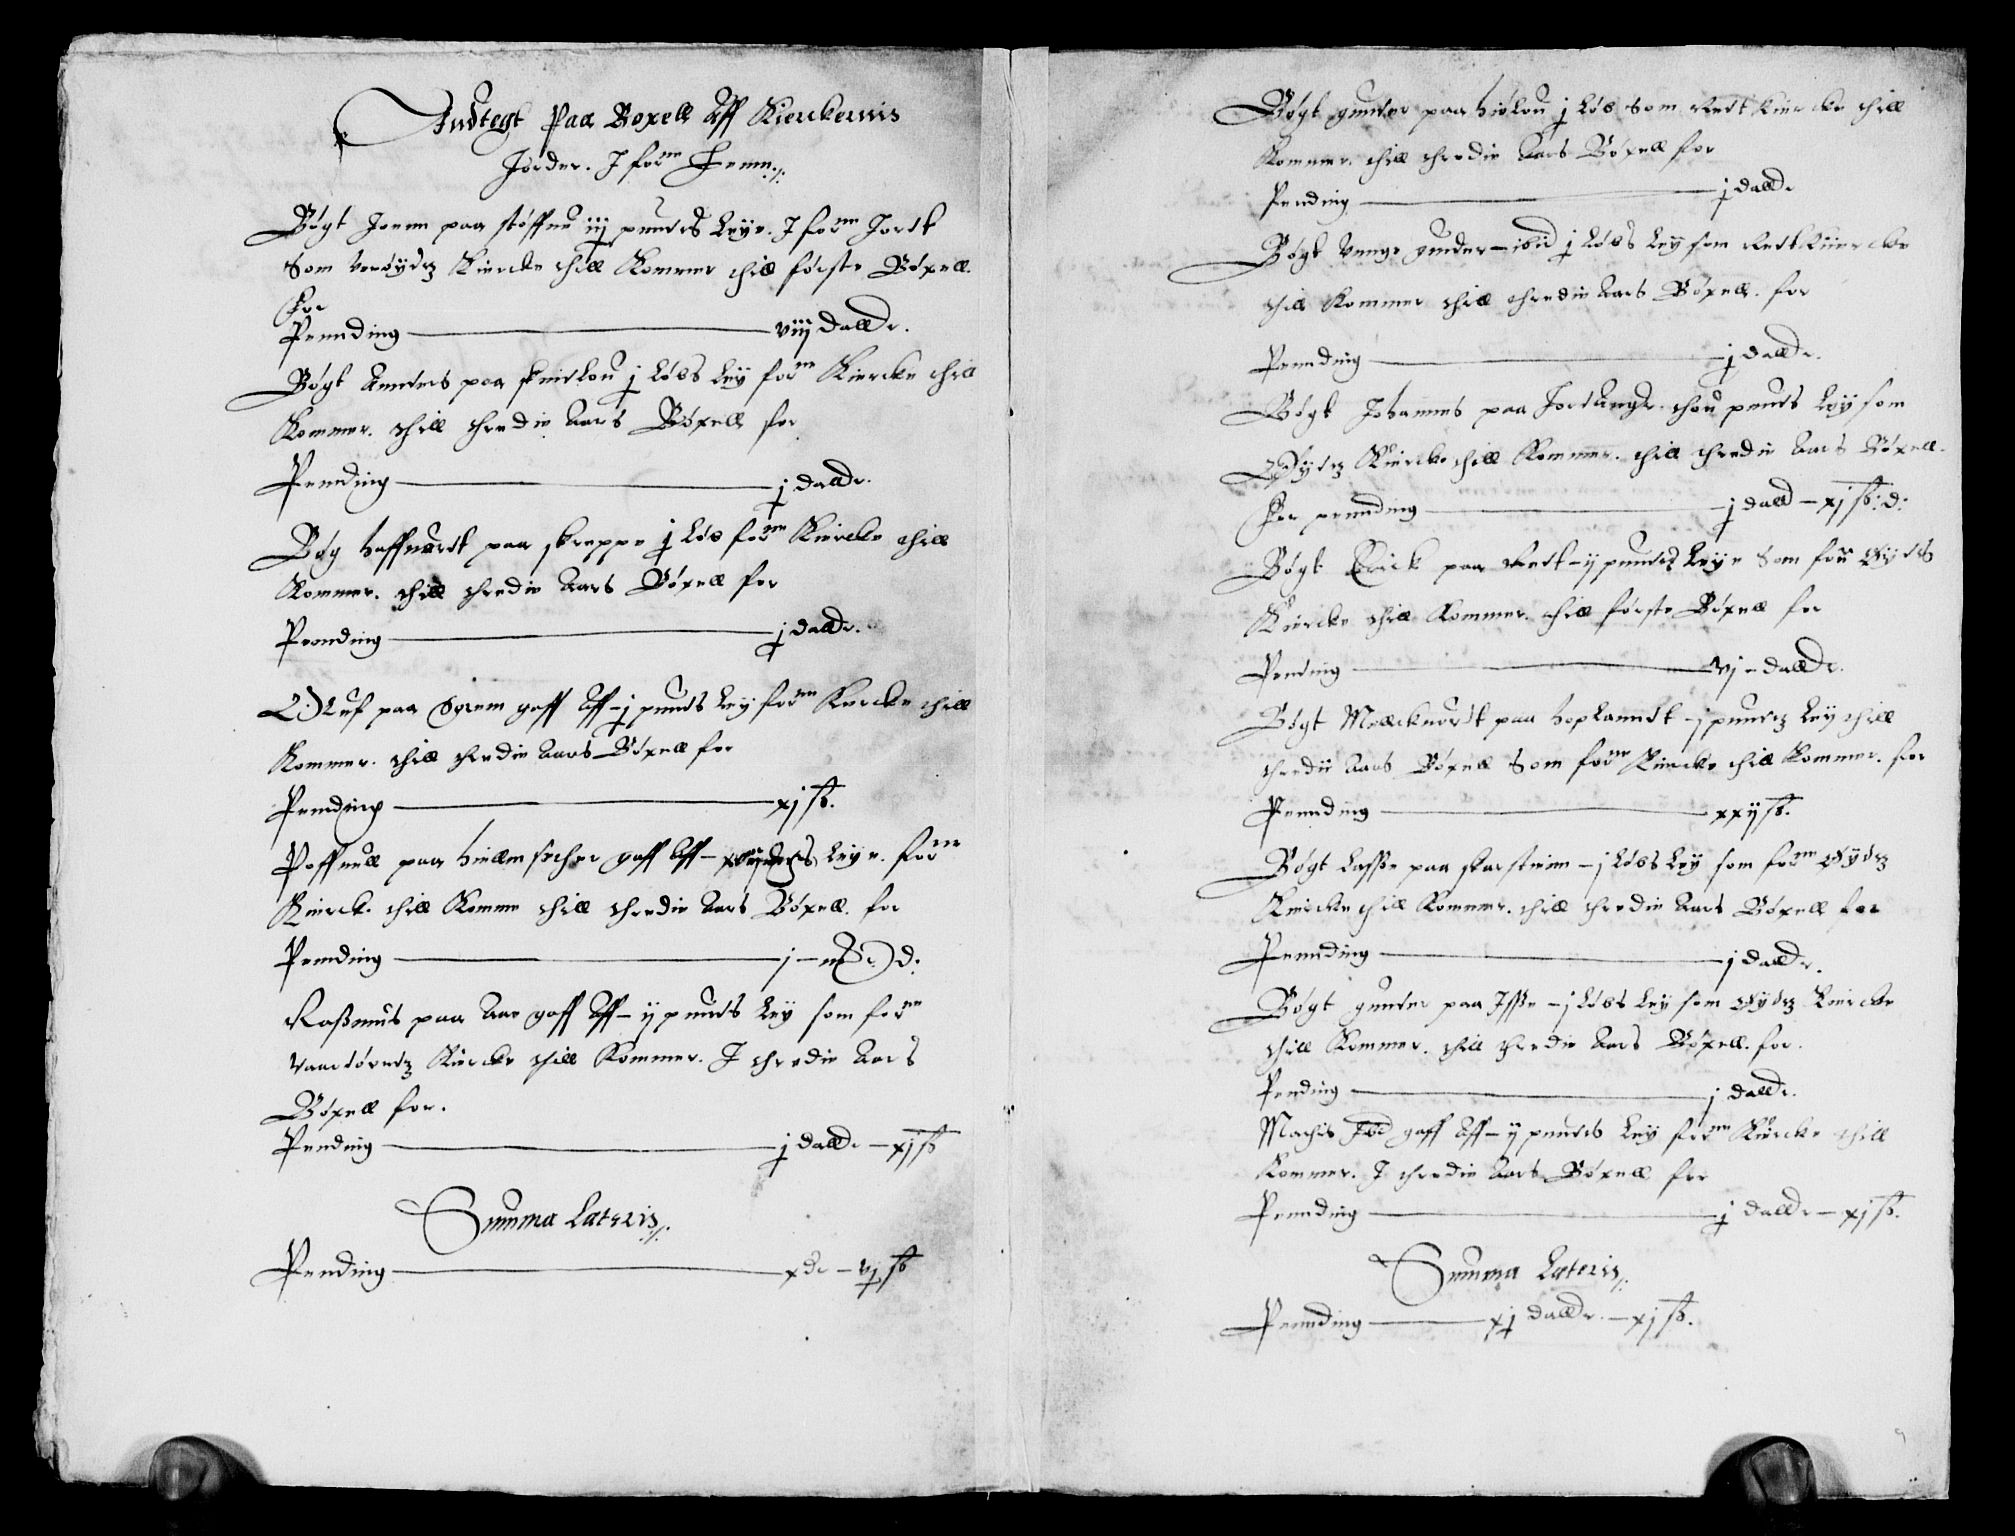 Indtegt Paa Boxell Aff Kierckernis
Jorder. I for^ne Lenn:/:
Bøgt Joenn paa støffnu iij punds Leye. I for^ne Jortt
Som Kiercke thill Kommer thill første Bøxell.
For
Pending — viij dallr.
Bøgt Anders paa j Løbs Leÿ for^ne Kiercke thill
Kommer. thill thredie Aars Bøxell for
Pending — j dallr.
Bøg haffuortt paa skreppe j Løb for^ne Kiercke thill
Kommer. thill thredie Aars Bøxell for
Pending — j dallr.
Oluf paa gaff Aff – j punds Leÿ for^ne Kiercke thill
Kommer. thill thredie Aars Bøxell for
Pending — xj ß.
Poffuell paa gaff Aff – Leye. for^ne
Kierck. thill Komme thill thredie Aars Bøxell. for
Pending — j –
Raßmus paa Aae gaff Aff – ij punds Leÿ som for^ne
Kiercke thill Kommer. I thredie Aars
Bøxell for.
Pending — j dallr – xj ß
Summa Lateris:/:
Pending — x dr – vj ß
Bøgt gunder paa j Løb Som Kiercke thill
Kommer. thill thredie Aars Bøxell for
Pending — j dallr
Bøgt gunder – ibid j Løbs Leÿ som Kiercke
thill Kommer thill thredie Aars Bøxell. for
Pending — j dallr.
Bøgt Johannes paa thou punds Leÿ som
Kiercke thill Kommer. thill thredie Aars Bøxell.
For pending — j dall – xj ß: d:
Bøgt Erick paa – ij punds Leye Som
Kiercke thill Kommer. thill første Bøxell for
Pending — vj – dallr.
Bøgt paa hoplanndt – j Leÿ thill
thredie Aars Bøxell Som for^ne Kiercke thill Kommer. for
Pending — xxij ß.
Bøgt Lasße paa skarstein – j Løbs Leÿ som for^ne
Kiercke thill Kommer. thill thredie Aars Bøxell for
Pending — j dallr.
Bøgt gunder paa – j Løbs Leÿ som Kiercke
thill Kommer. thill thredie Aars Bøxell. for.
Pending — j dallr.
Mathis Ibid gaff Aff – ij punds Leÿ for^ne Kiercke thill
Kommer. I thredie Aars Bøxell for
Pending — j dallr – xj ß.
Summa Lateris:/:
Pending — xj dallr. – xj ß.